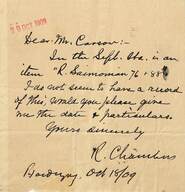 20 OCT 1909
Dear Mr. Carson:-
In the Sept. Sta. is an
item "R. Salmonson 76 + 88"
I do not seem to have a record
of this, will you please give
me the date & particulars.
Yours sincerely
R. Chambers
Oct 18/09